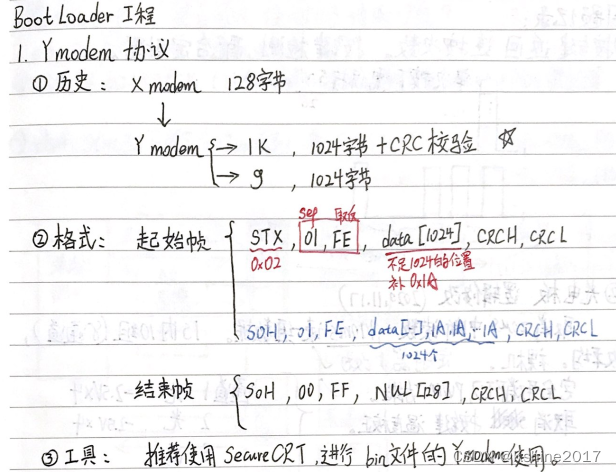 BootLoader 工程
1. Ymodem 协议
① 历史： Xmodem 128字节
↓
Ymodem { → 1K ， 1024字节 + CRC 校验 ☆
→ g ， 1024字节
seq 取反
② 格式： 起始帧 { STX , 01 , FE , data[1024] , CRCH , CRCL
0x02 不足1024的位置
补 0x1A
SOH , 01 , FE , data[-], 1A, 1A, …1A , CRCH, CRCL
1024个
结束帧 { SOH , 00 , FF , NUL[128] , CRCH , CRCL
③ 工具： 推荐使用 SecureCRT ,进行 bin文件的 Ymodem使用。